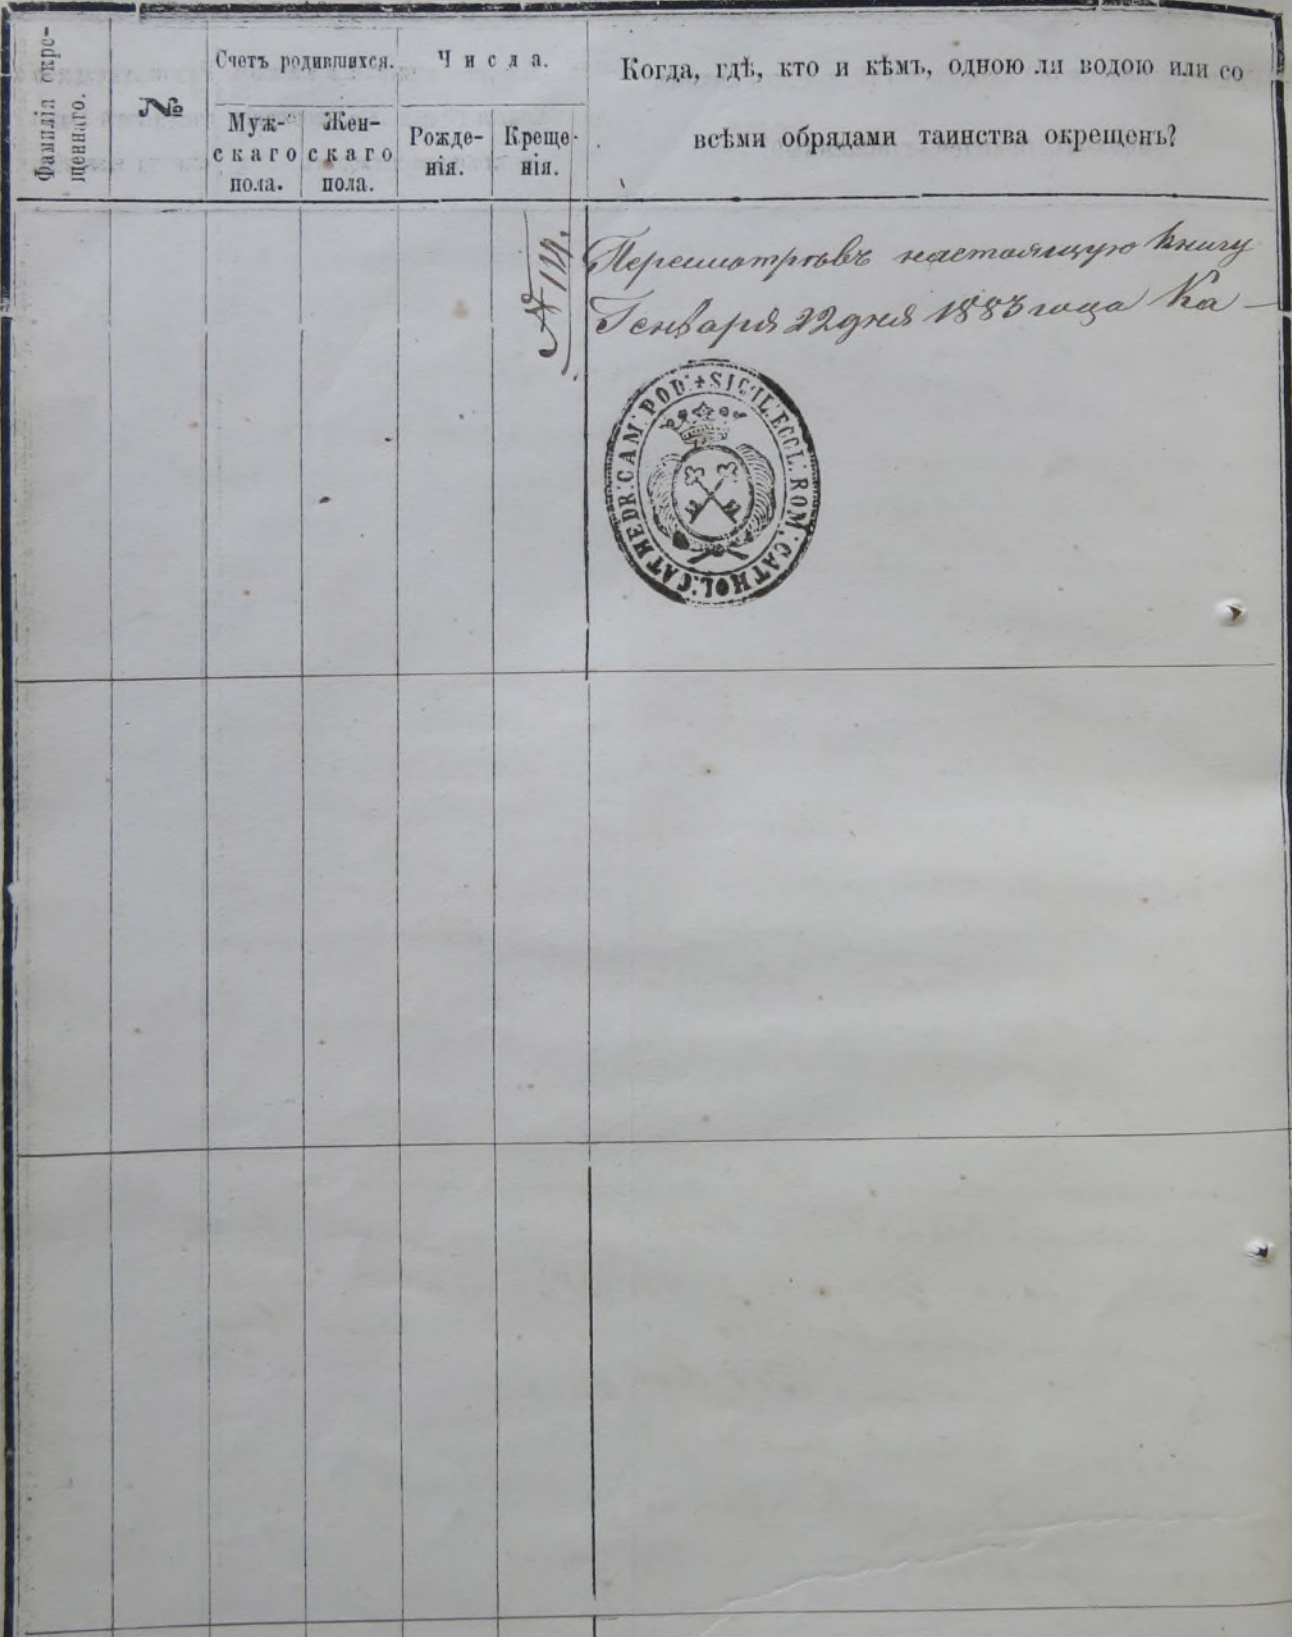 Фамилія окре-
щеннаго.
№
Счетъ родившихся.
Муж-
скаго
пола.
Жен-
скаго
пола.
Числа.
Рожде-
нія.
Креще-
нія.
Когда, гдѣ, кто и кѣмъ, одною ли водою или со
всѣми обрядами таинства окрещенъ?
№ 114.
Пересмотрѣвъ настоящую книгу
Генваря 22 дня 1883 года Ка-
SIGIL: ECCL: ROM: CATHOL: CATHEDR: CAM: POD: